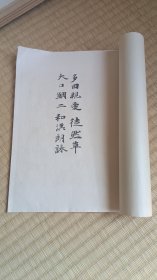 多田親愛 徒然草
大口鯛二 和漢朗詠